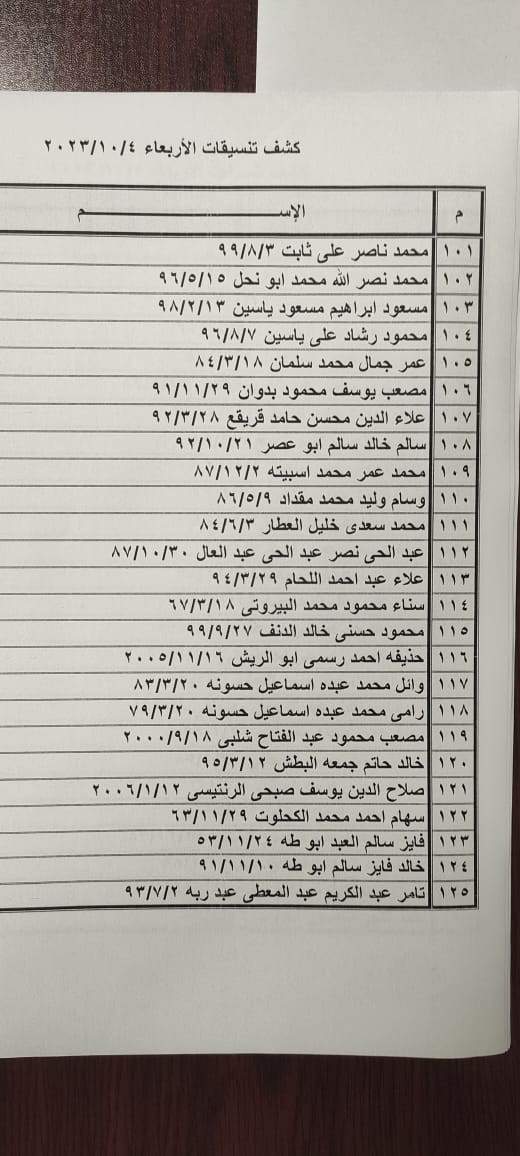 كشف تنسيقات الأربعاء ٢٠٢٣/١٠/٤
م الإســـــــــــــــــــــــم
١٠١ محمد ناصر على ثابت ٩٩/٨/٣
١٠٢ محمد نصر الله محمد ابو نحل ٩٦/٥/١٥
١٠٣ مسعود ابراهيم مسعود ياسين ٩٨/٢/١٣
١٠٤ محمود رشاد على ياسين ٩٦/٨/٧
١٠٥ عمر جمال محمد سلمان ٨٤/٣/١٨
١٠٦ مصعب يوسف محمود بدوان ٩١/١١/٢٩
١٠٧ علاء الدين محسن حامد قريقع ٩٢/٣/٢٨
١٠٨ سالم خالد سالم ابو عصر ٩٢/١٠/٢١
١٠٩ محمد عمر محمد اسبيته ٨٧/١٢/٢
١١٠ وسام وليد محمد مقداد ٨٦/٥/٩
١١١ محمد سعدى خليل العطار ٨٤/٦/٣
١١٢ عبد الحى نصر عبد الحى عبد العال ٨٧/١٠/٣٠
١١٣ علاء عبد احمد اللحام ٩٤/٣/٢٩
١١٤ سناء محمود محمد البيروتى ٦٧/٣/١٨
١١٥ محمود حسنى خالد الدنف ٩٩/٩/٢٧
١١٦ حذيفه احمد رسمى ابو الريش ٢٠٠٥/١١/١٦
١١٧ وائل محمد عبده اسماعيل حسونه ٨٣/٣/٢٠
١١٨ رامى محمد عبده اسماعيل حسونه ٧٩/٣/٢٠
١١٩ مصعب محمود عبد الفتاح شلبى ٢٠٠٠/٩/١٨
١٢٠ خالد حاتم جمعه البطش ٩٥/٣/١٢
١٢١ صلاح الدين يوسف صبحى الرنتيسى ٢٠٠٦/١/١٢
١٢٢ سهام احمد محمد الكحلوت ٦٣/١١/٢٩
١٢٣ فايز سالم العبد ابو طه ٥٣/١١/٢٤
١٢٤ خالد فايز سالم ابو طه ٩١/١١/١٠
١٢٥ تامر عبد الكريم عبد المعطى عبد ربه ٩٣/٧/٢